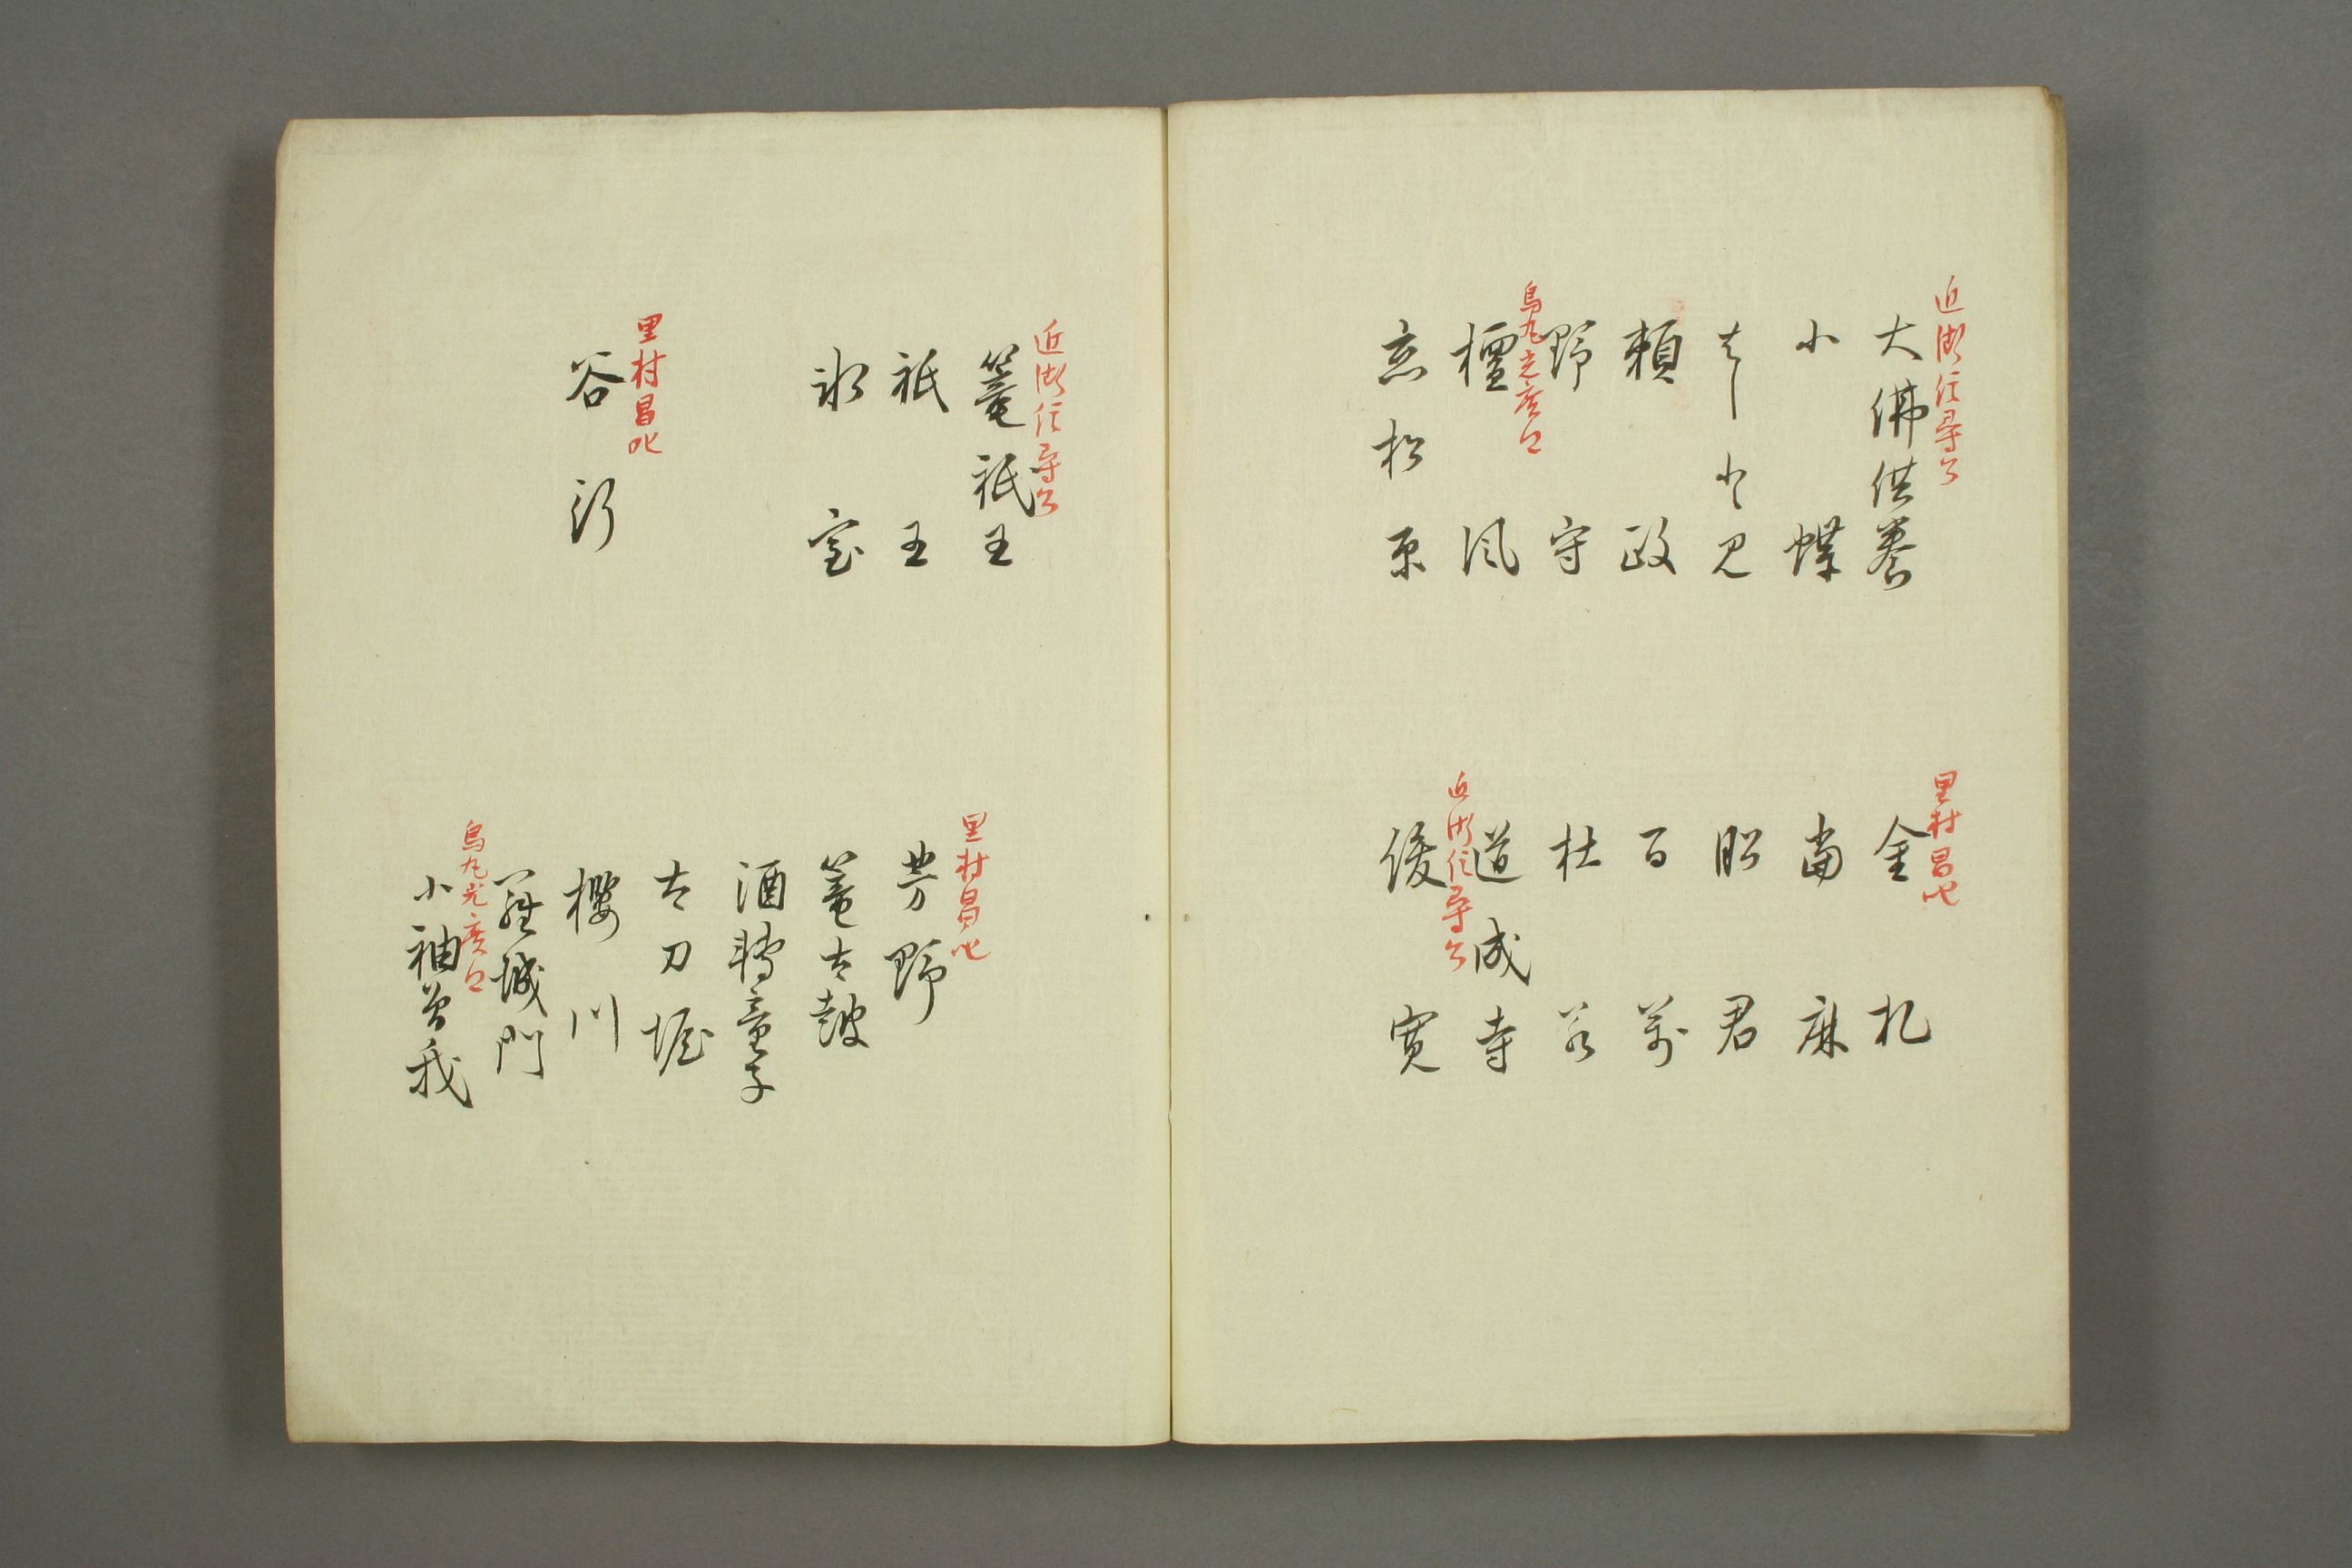 近衛信尋公
大佛供養
小蝶
頼政
野守
烏丸光広卿
檀風
恋松原
里村昌叱
金札
當麻
昭君
百萬
杜若
道成寺
近衛信尋公
俊寛
近衛信尋公
篭祇王
祇王
氷室
里村昌叱
谷行
里村昌叱
芳野
篭太鼓
酒轉童子
太刀堀
櫻川
羅城門
烏丸光廣卿
小袖曽我